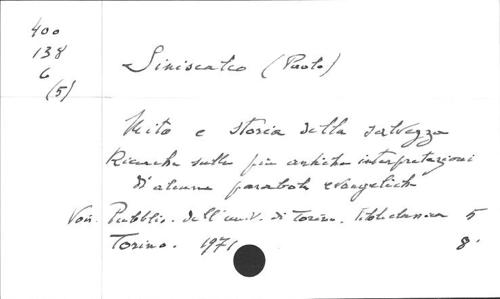 400
138
6
(5)
Siniscalco (Paolo)
Mito e storia della salvezza
Ricerche sulle più antiche interpretazioni
d'alcune parabole evangeliche
Pubblic. dell'univ. di Torino. 5
Torino. 1971 8.